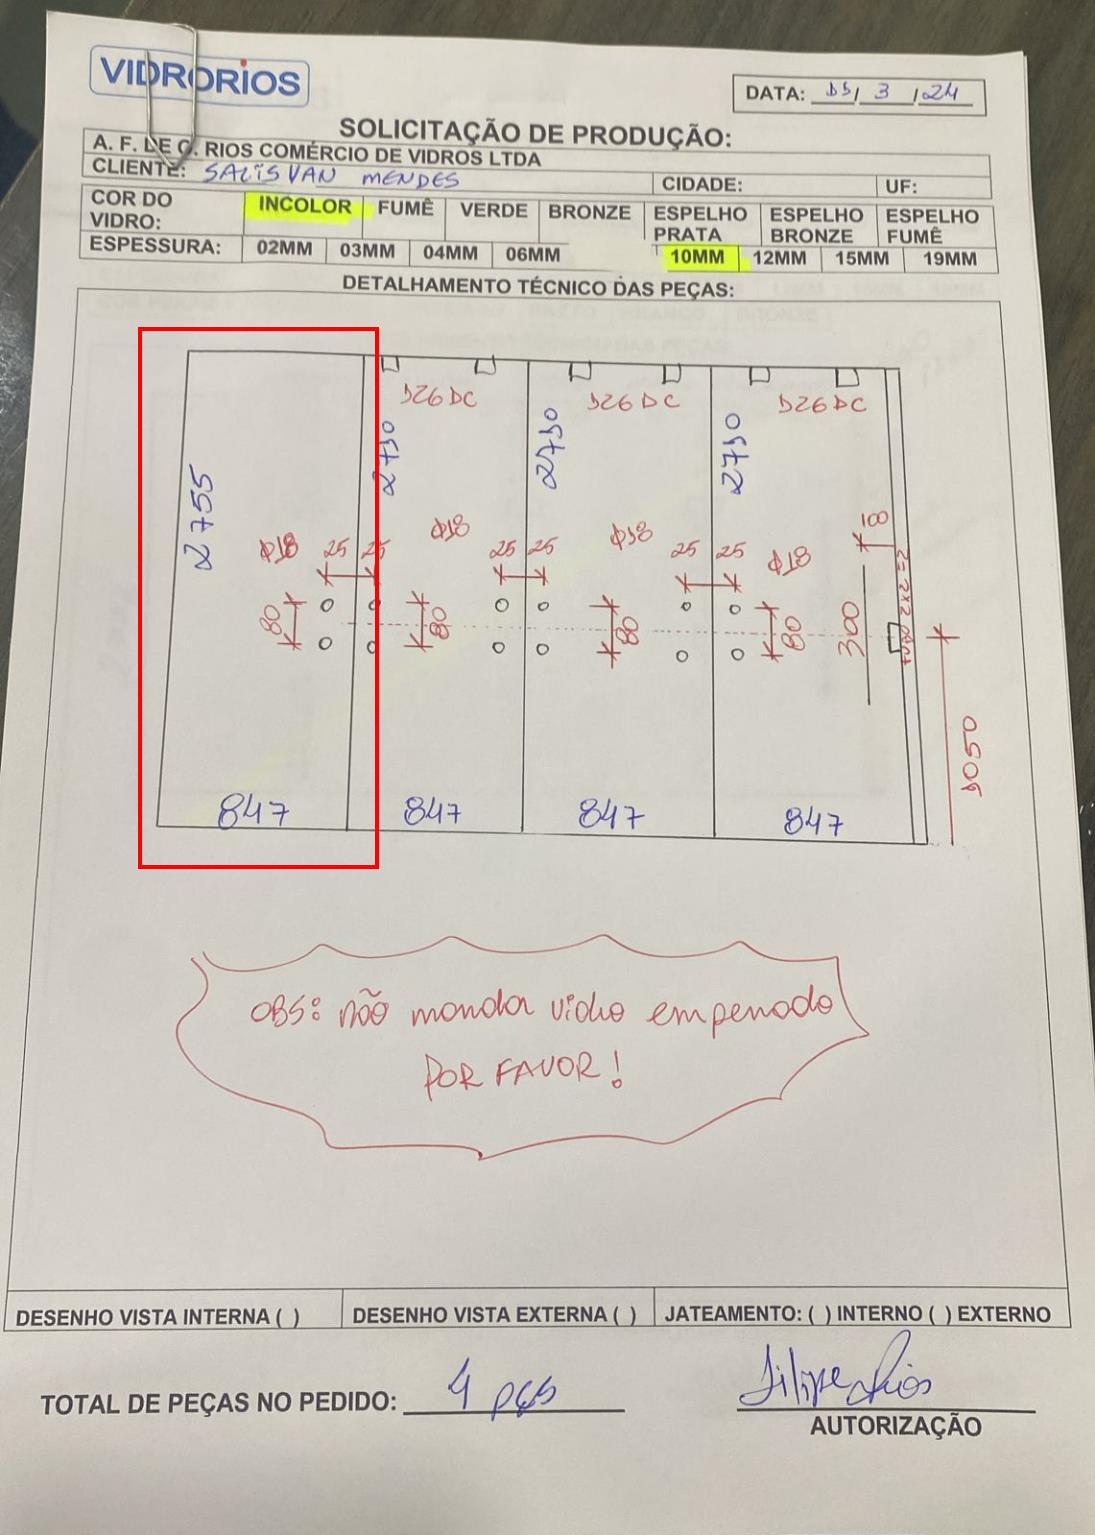 VIDRORIOS
DATA: 15/ 3 /24
SOLICITAÇÃO DE PRODUÇÃO:
A. F. DE O. RIOS COMÉRCIO DE VIDROS LTDA
CLIENTE: SALISVAN MENDES CIDADE: UF:
COR DO VIDRO: INCOLOR FUMÊ VERDE BRONZE ESPELHO PRATA ESPELHO BRONZE ESPELHO FUMÊ
ESPESSURA: 02MM 03MM 04MM 06MM 10MM 12MM 15MM 19MM
DETALHAMENTO TÉCNICO DAS PEÇAS:
126 DC 126 DC 126 DC
2755 2730 2730 2730
Φ18 25 25 Φ18 25 25 Φ18 25 25 Φ18 100
80 80 80 80 300
1050
847 847 847 847
OBS: não mandar vidro empenado
POR FAVOR!
DESENHO VISTA INTERNA ( ) DESENHO VISTA EXTERNA ( ) JATEAMENTO: ( ) INTERNO ( ) EXTERNO
TOTAL DE PEÇAS NO PEDIDO: 4 pçs
Filipe Rios
AUTORIZAÇÃO